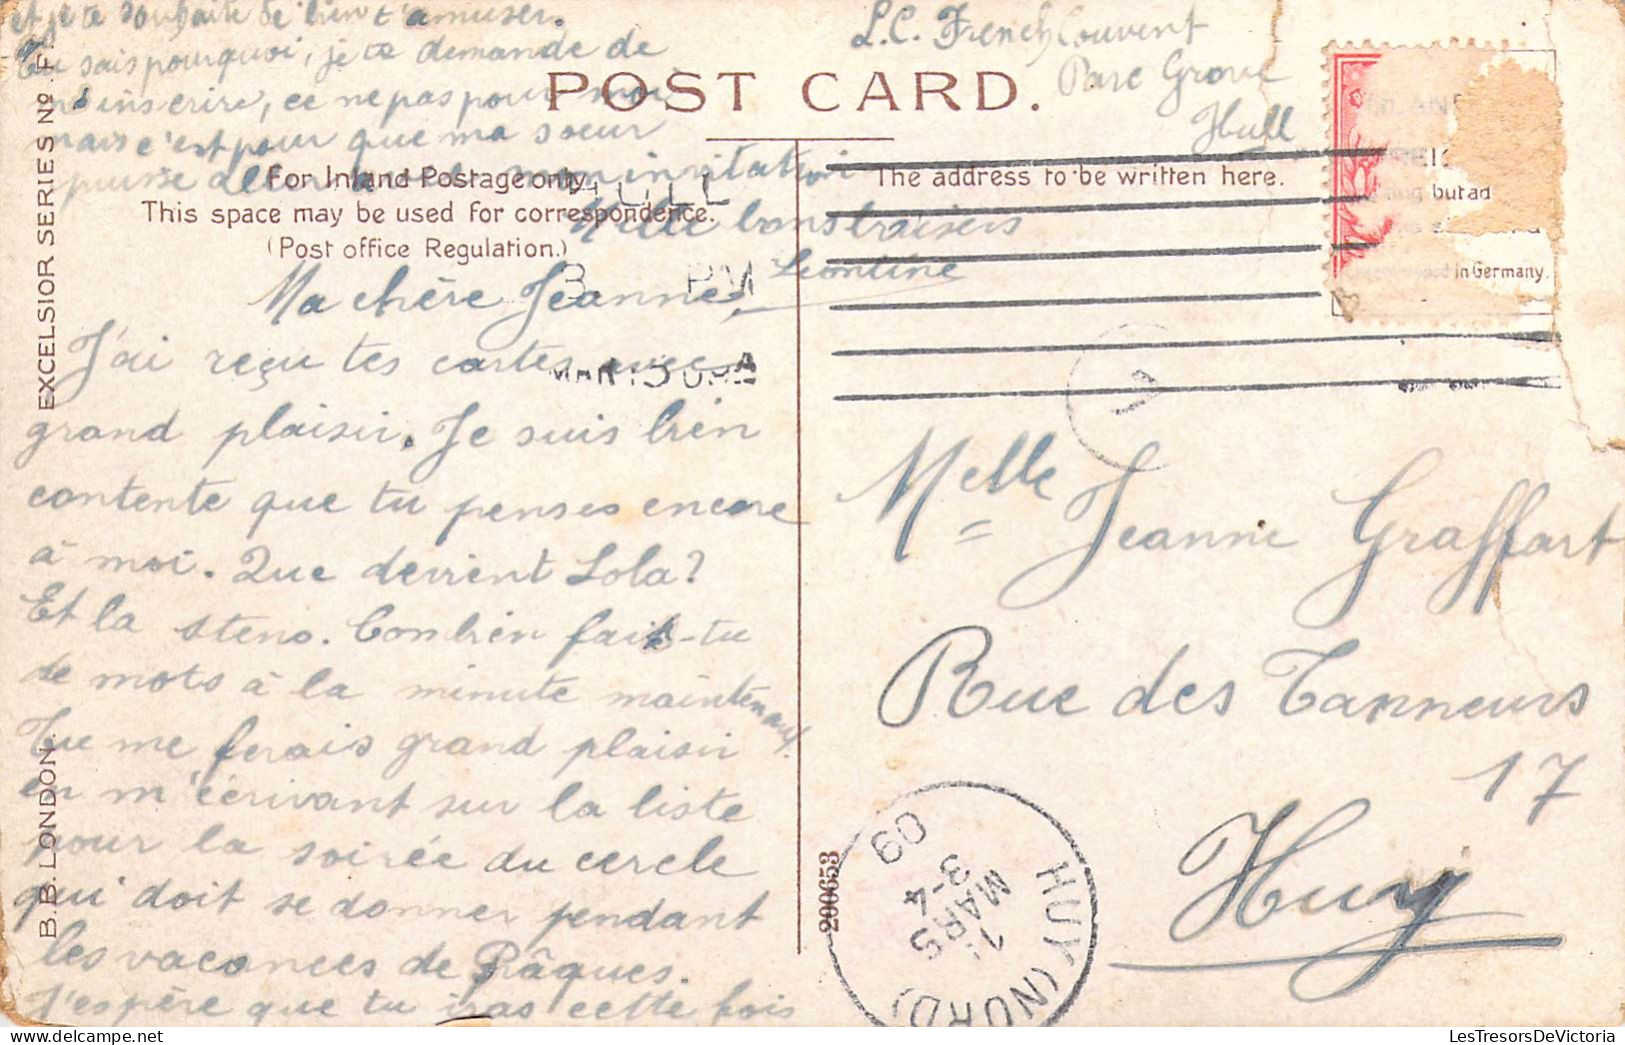 et je te souhaite de bien t'amuser.
Tu sais pourquoi, je te demande de
m'inscrire, ce ne pas pour moi
mais c'est pour que ma soeur
puisse mon invitation
Mille bons baisers
Leontine
L.C. French Convent
Parc Grove
Hull
POST CARD.
For Inland Postage only.
This space may be used for correspondence.
(Post office Regulation.)
The address to be written here.
HULL
3 PM
MAR 15 09
but ad
in Germany.
EXCELSIOR SERIES No F.
B.B. LONDON.
Ma chère Jeanne,
J'ai reçu tes cartes avec
grand plaisir. Je suis bien
contente que tu penses encore
à moi. Que devient Lola?
Et la steno. Combien fais-tu
de mots à la minute maintenant.
Tu me ferais grand plaisir
en m'écrivant sur la liste
pour la soirée du cercle
qui doit se donner pendant
les vacances de Pâques.
J'espère que tu iras cette fois
Melle Jeanne Graffart
Rue des Tanneurs
17
Huy
200653
HUY (NORD)
MARS
3-4
09
LesTresorsDeVictoria.com